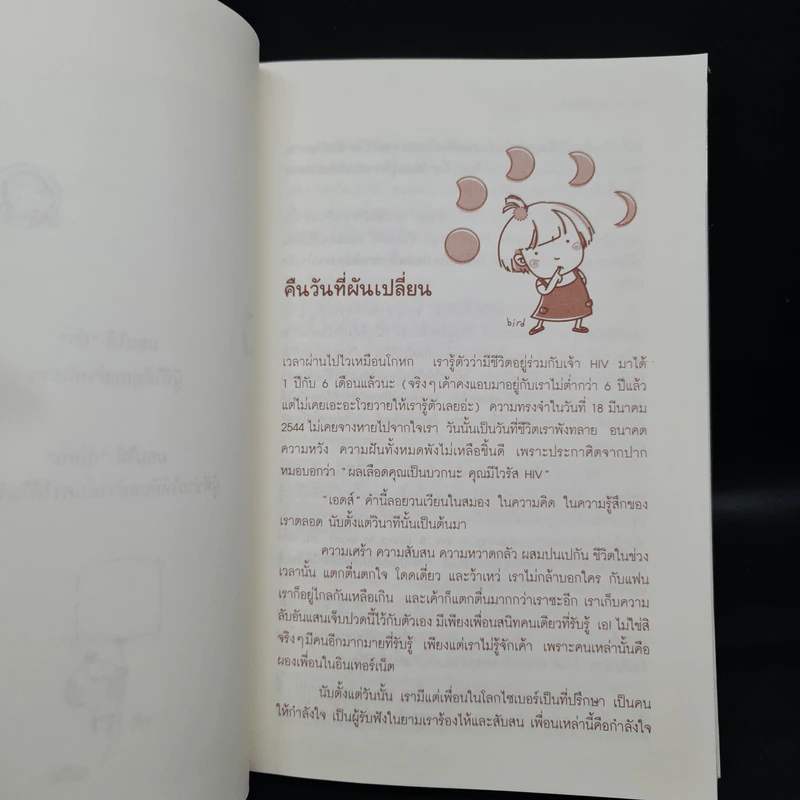 คืนวันที่ผันเปลี่ยน
bird
เวลาผ่านไปไวเหมือนโกหก เรารู้ตัวว่ามีชีวิตอยู่ร่วมกับเจ้า HIV มาได้
1 ปีกับ 6 เดือนแล้วนะ (จริงๆ เค้าคงแอบมาอยู่กับเราไม่ต่ำกว่า 6 ปีแล้ว
แต่ไม่เคยเอะอะโวยวายให้เรารู้ตัวเลยอ่ะ) ความทรงจำในวันที่ 18 มีนาคม
2544 ไม่เคยจางหายไปจากใจเรา วันนั้นเป็นวันที่ชีวิตเราพังทลาย อนาคต
ความหวัง ความฝันทั้งหมดพังไม่เหลือชิ้นดี เพราะประกาศิตจากปาก
หมอบอกว่า "ผลเลือดคุณเป็นบวกนะ คุณมีไวรัส HIV"
"เอดส์" คำนี้ลอยวนเวียนในสมอง ในความคิด ในความรู้สึกของ
เราตลอด นับตั้งแต่วินาทีนั้นเป็นต้นมา
ความเศร้า ความสับสน ความหวาดกลัว ผสมปนเปกัน ชีวิตในช่วง
เวลานั้น แตกตื่นตกใจ โดดเดี่ยว และว้าเหว่ เราไม่กล้าบอกใคร กับแฟน
เราก็อยู่ไกลกันเหลือเกิน และเค้าก็แตกตื่นมากกว่าเราซะอีก เราเก็บความ
ลับอันแสนเจ็บปวดนี้ไว้กับตัวเอง มีเพียงเพื่อนสนิทคนเดียวที่รับรู้ เอ! ไม่ใช่สิ
จริงๆ มีคนอีกมากมายที่รับรู้ เพียงแต่เราไม่รู้จักเค้า เพราะคนเหล่านั้นคือ
ผองเพื่อนในอินเทอร์เน็ต
นับตั้งแต่วันนั้น เรามีแต่เพื่อนในโลกไซเบอร์เป็นที่ปรึกษา เป็นคน
ให้กำลังใจ เป็นผู้รับฟังในยามเราร้องไห้และสับสน เพื่อนเหล่านี้คือกำลังใจ